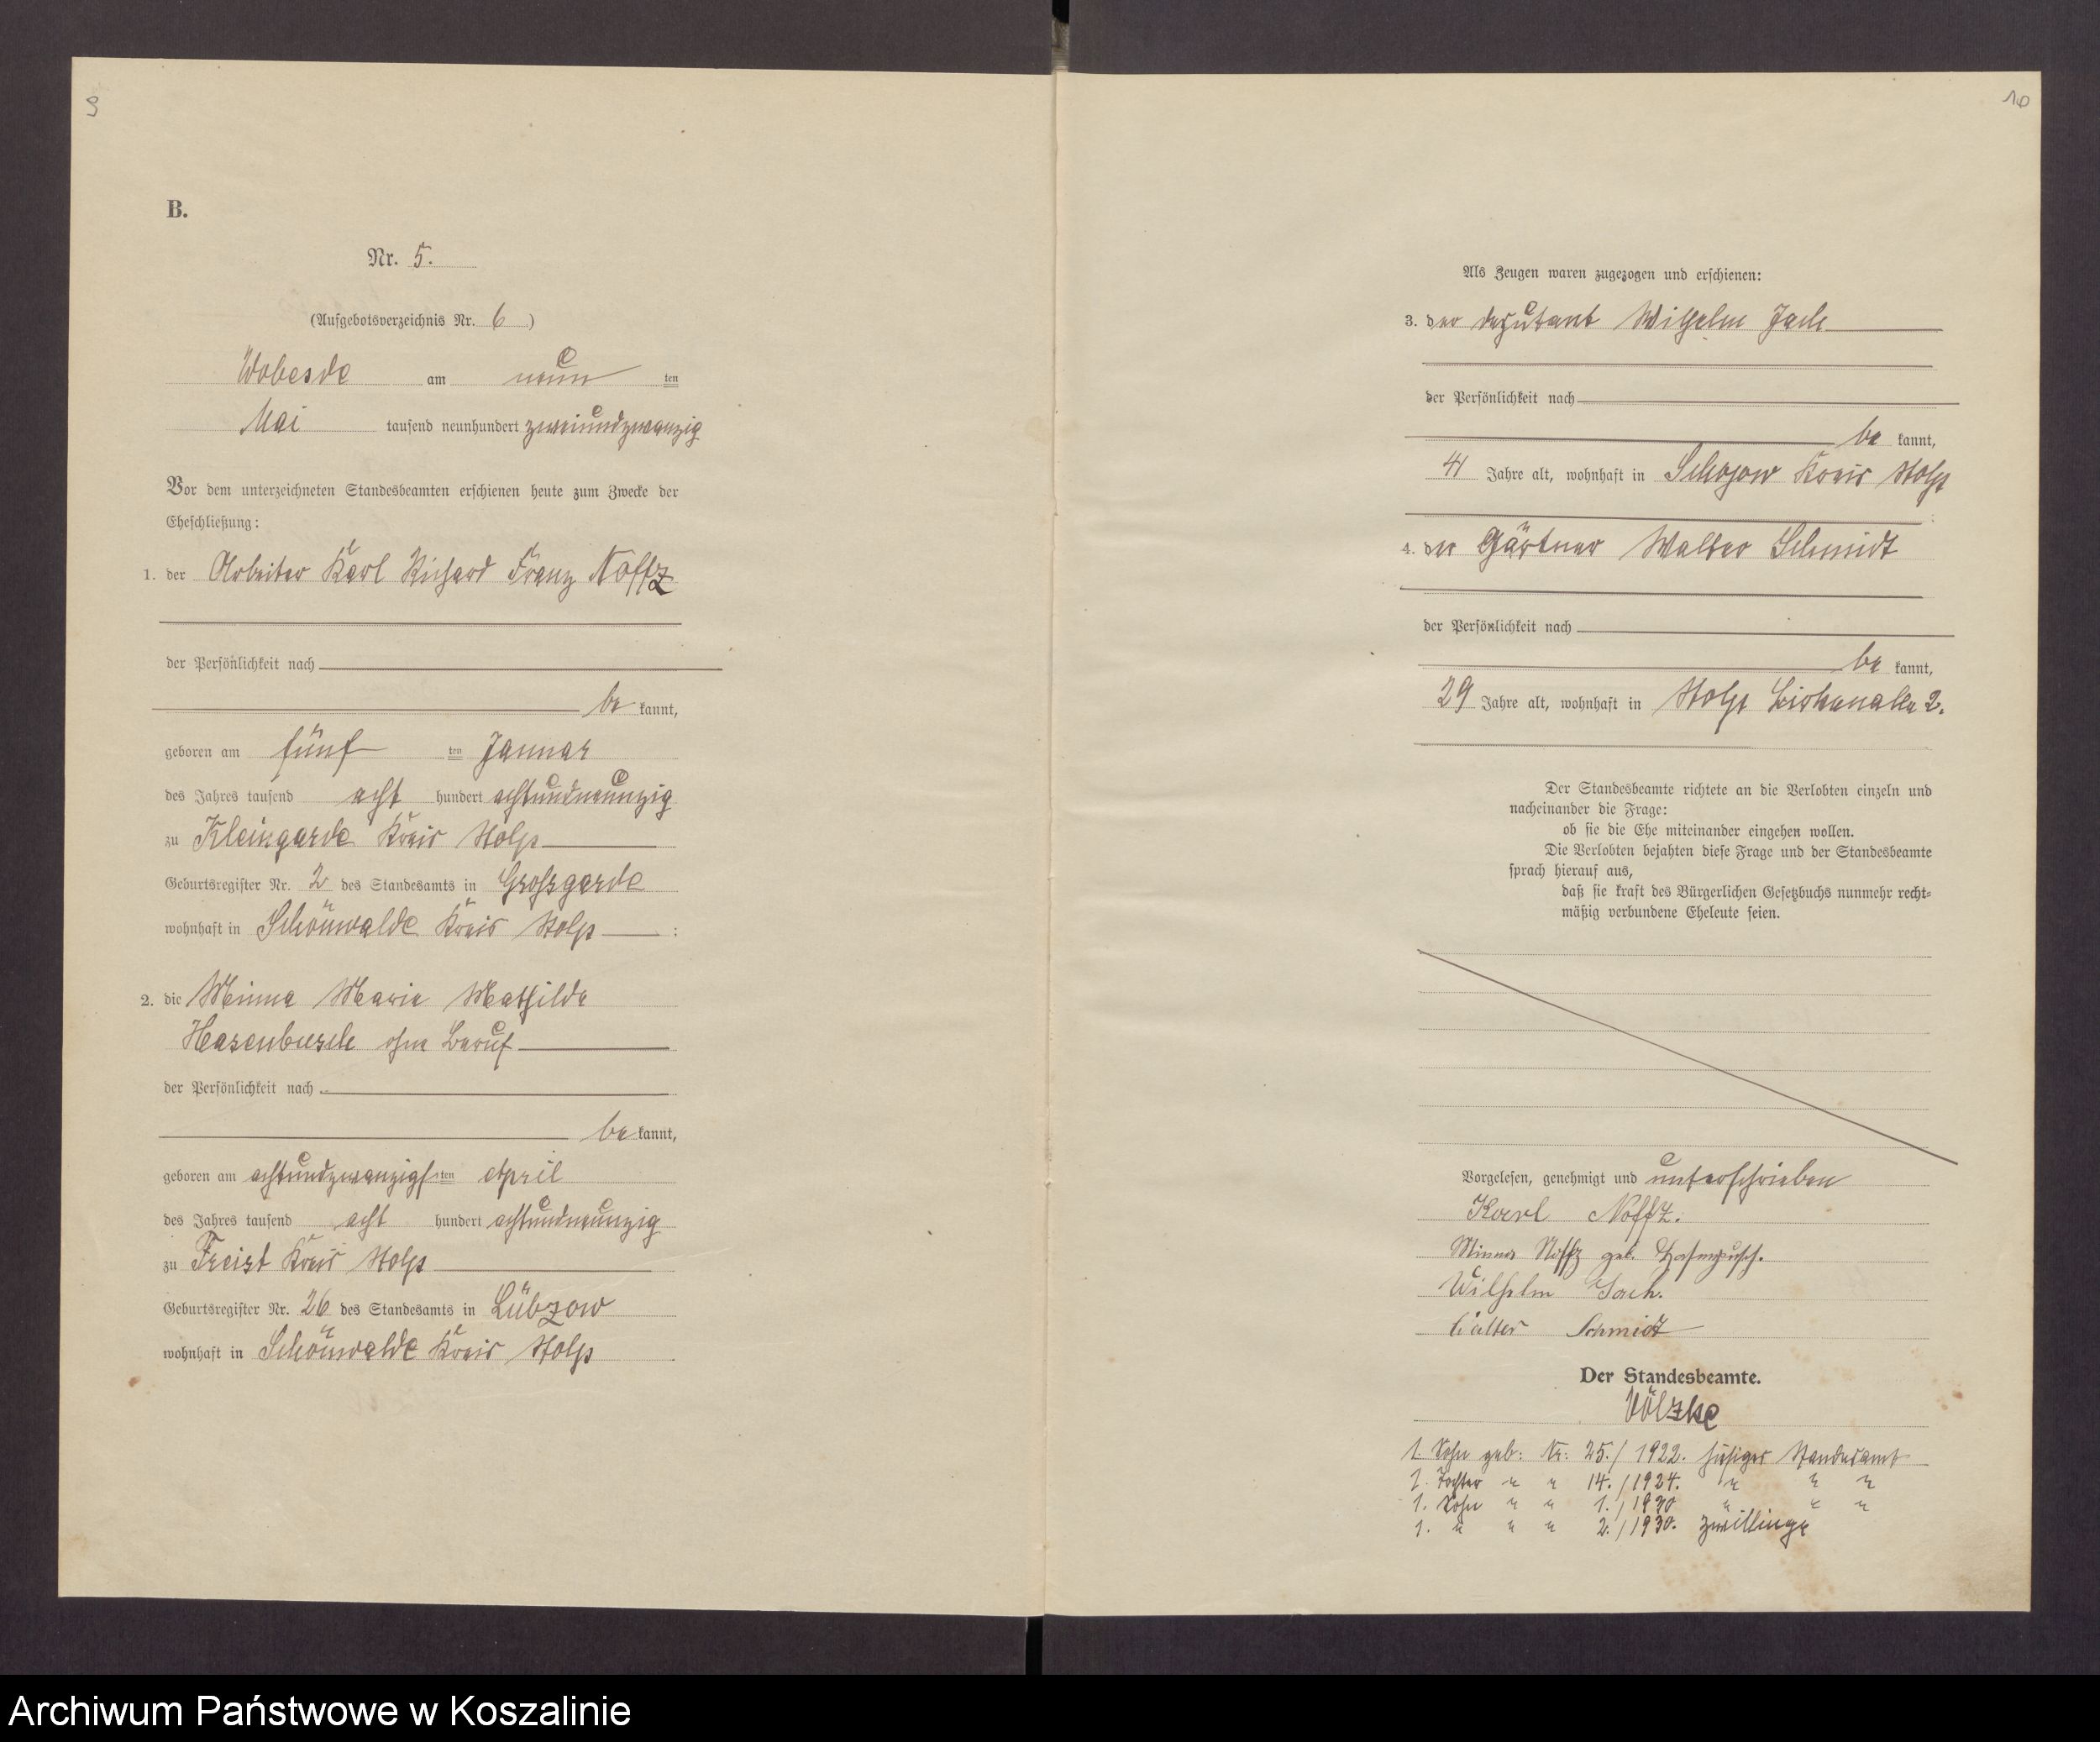 9
B.
Nr. 5.
(Aufgebotsverzeichnis Nr. 6)
Wobesde am neun ten
Mai tausend neunhundert zweiundzwanzig
Vor dem unterzeichneten Standesbeamten erschienen heute zum Zwecke der
Eheschließung:
1. der Arbeiter Karl Richard Franz Noffz
der Persönlichkeit nach
be kannt,
geboren am fünf ten Januar
des Jahres tausend acht hundert achtundneunzig
zu Kleingarde Kreis Stolp
Geburtsregister Nr. 2 des Standesamts in Grossgarde
wohnhaft in Schönwalde Kreis Stolp :
2. die Minna Marie Mathilde
Hasenbusch ohne Beruf
der Persönlichkeit nach
be kannt,
geboren am achtundzwanzigsten April
des Jahres tausend acht hundert achtundneunzig
zu Freist Kreis Stolp
Geburtsregister Nr. 26 des Standesamts in Lübzow
wohnhaft in Schönwalde Kreis Stolp
10
Als Zeugen waren zugezogen und erschienen:
3. der Deputant Wilhelm Jach
der Persönlichkeit nach
be kannt,
41 Jahre alt, wohnhaft in Schojow Kreis Stolp
4. der Gärtner Walter Schmidt
der Persönlichkeit nach
be kannt,
29 Jahre alt, wohnhaft in Stolp 2.
Der Standesbeamte richtete an die Verlobten einzeln und
nacheinander die Frage:
ob sie die Ehe miteinander eingehen wollen.
Die Verlobten bejahten diese Frage und der Standesbeamte
sprach hierauf aus,
daß sie kraft des Bürgerlichen Gesetzbuchs nunmehr recht-
mäßig verbundene Eheleute seien.
Vorgelesen, genehmigt und unterschrieben
Karl Noffz.
Minna Noffz geb. Hasenpusch.
Wilhelm Jach.
Walter Schmidt
Der Standesbeamte.
Völzke
1. Sohn geb: Nr: 25./1922. hiesiges Standesamt
1. Tochter " " 14./1924. " " "
1. Sohn " " 1./1930 " " "
1. " " " 2./1930. Zwillinge
Archiwum Państwowe w Koszalinie